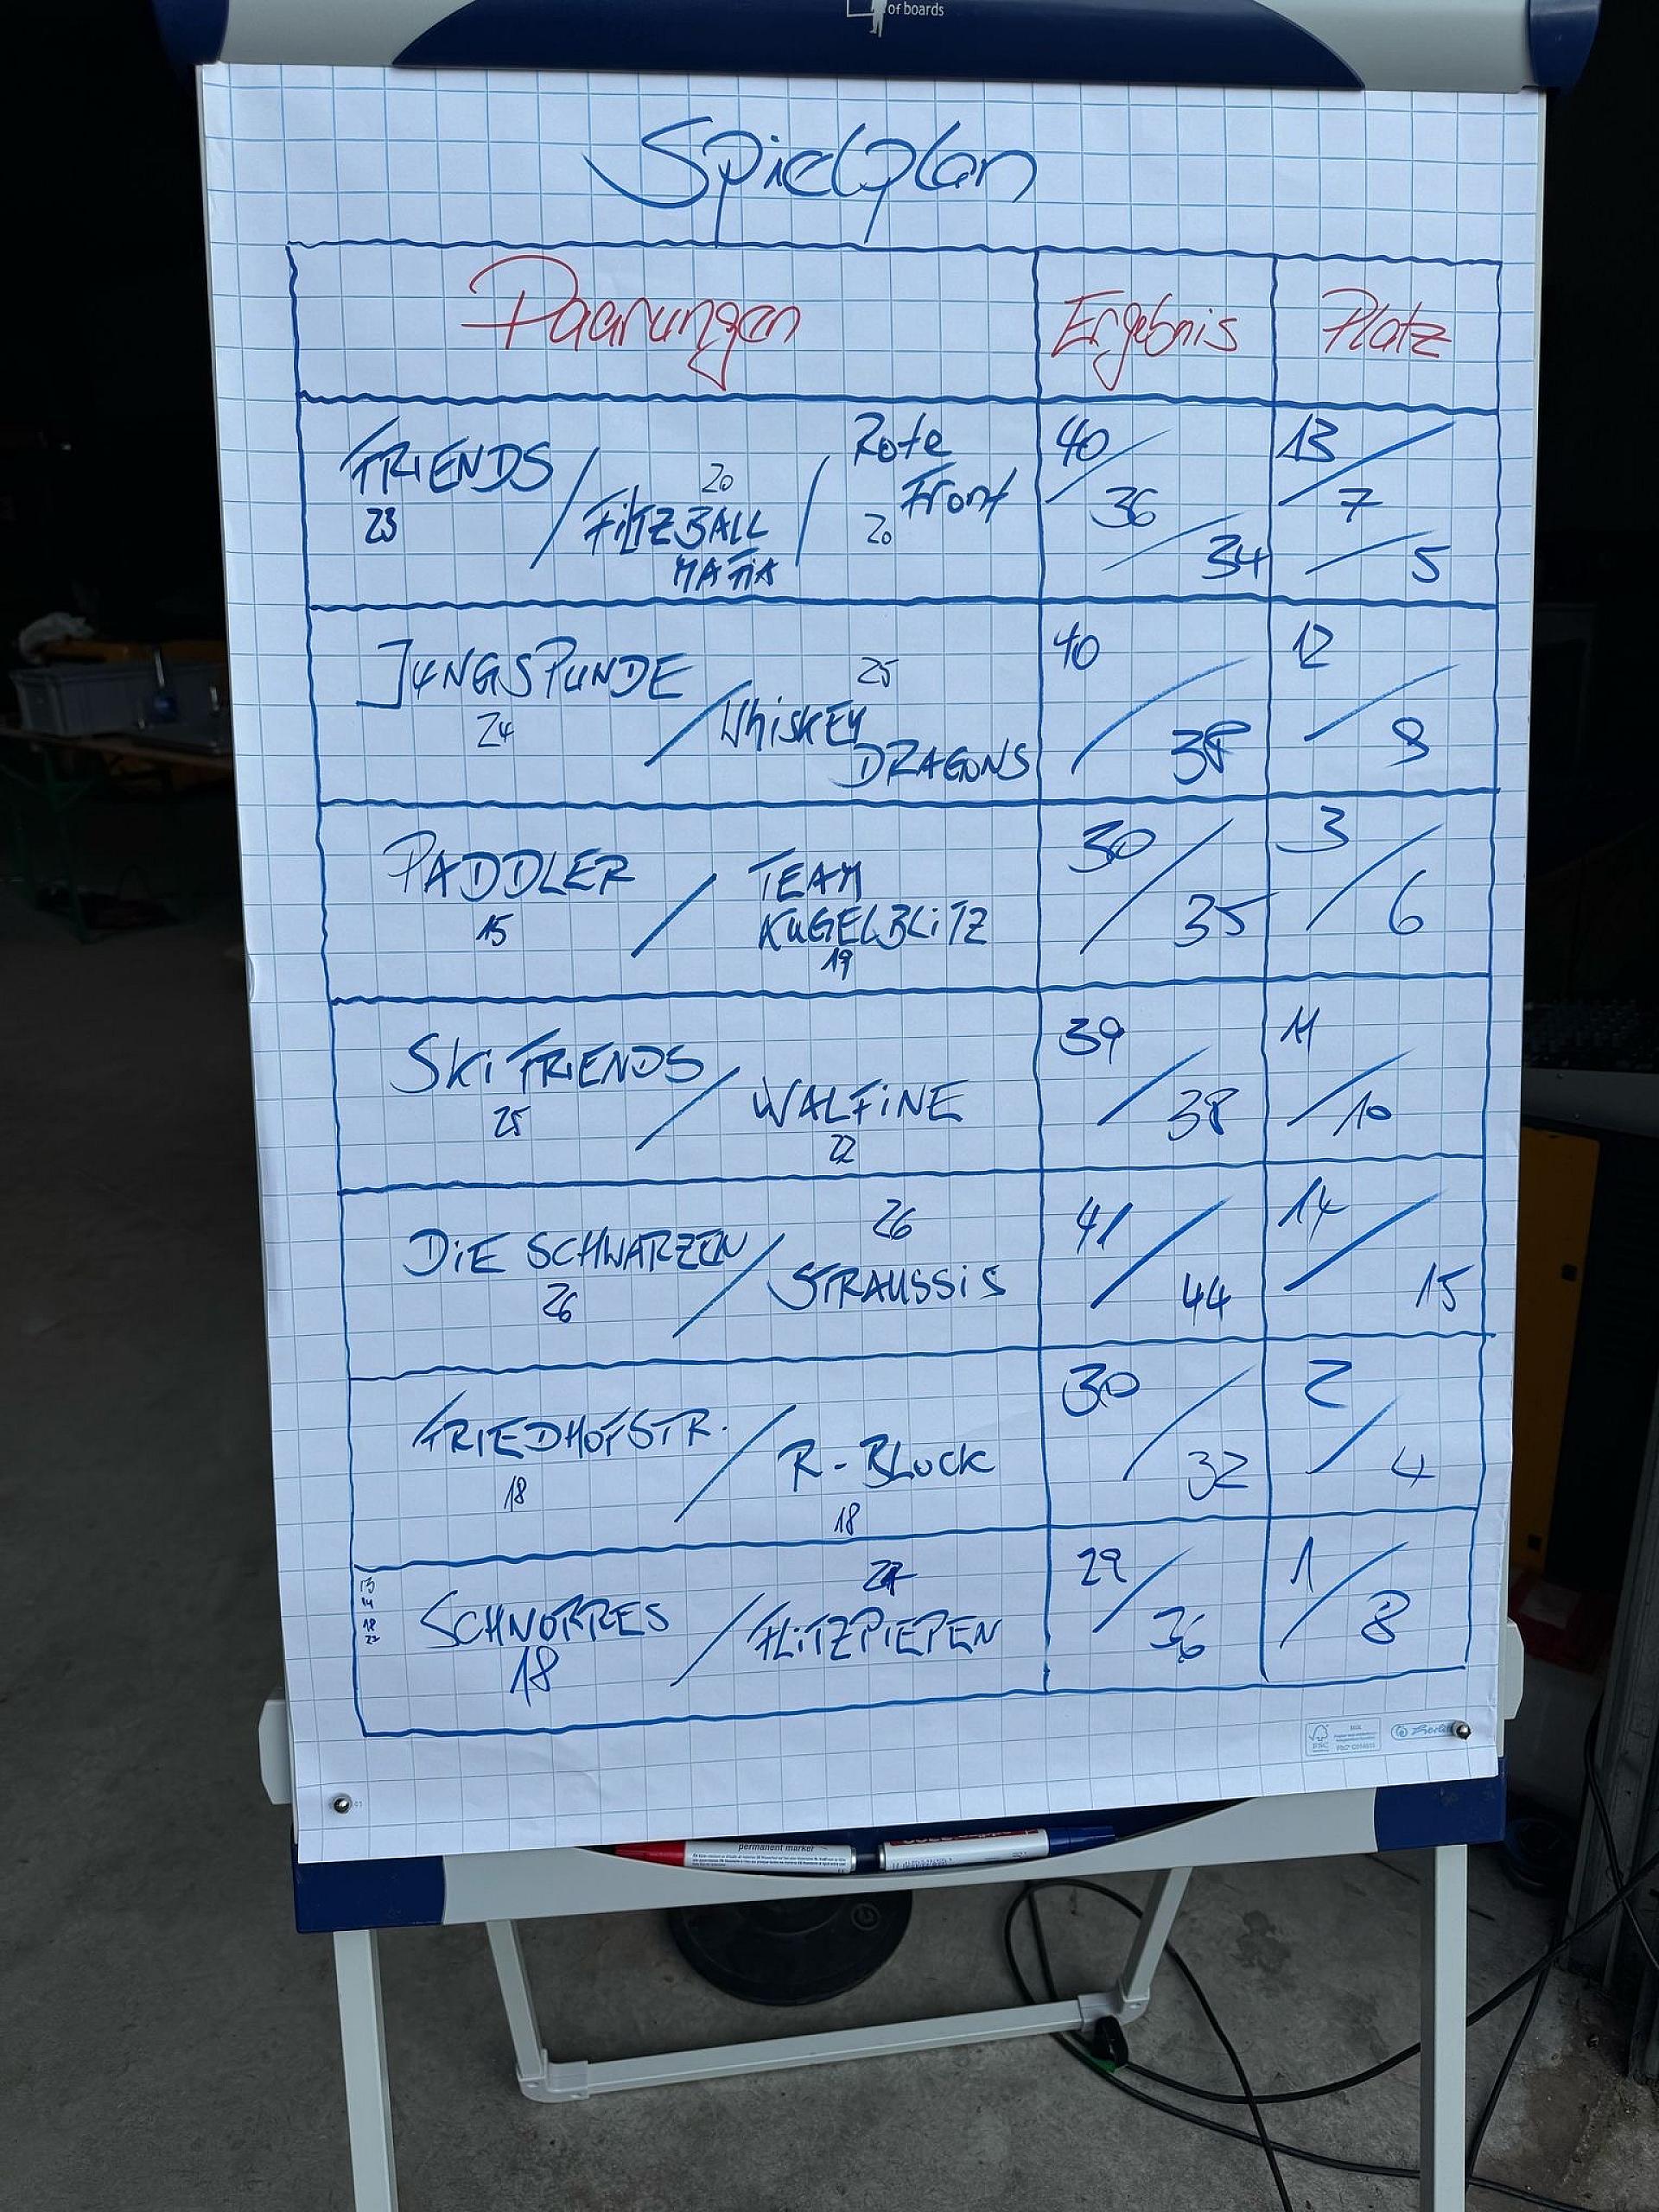 of boards
Spielplan
Paarungen Ergebnis Platz
FRIENDS / FILTZBALL MAFIA / Rote Front 40 / 36 / 34 13 / 7 / 5
23 20 20
JUNGSPUNDE / WHISKEY DRAGONS 40 / 38 12 / 9
24 25
PADDLER / TEAM KUGELBLITZ 30 / 35 3 / 6
15 19
SKI FRIENDS / WALFINE 39 / 38 11 / 10
25 22
DIE SCHWARZEN / STRAUSSIS 41 / 44 14 / 15
26 26
FRIEDHOFSTR. / R-BLOCK 30 / 32 2 / 4
18 18
SCHNORRES / FLITZPIEPEN 29 / 36 1 / 8
18
13
14
18
22
FSC
permanent marker